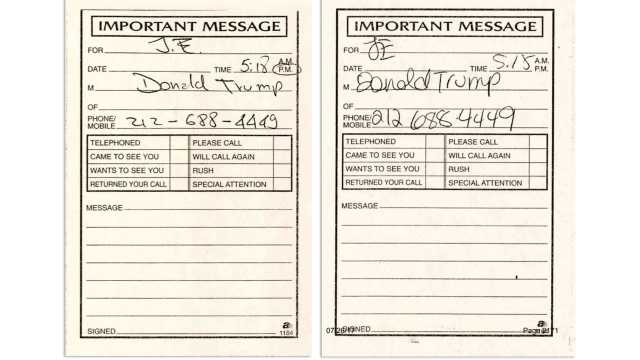 IMPORTANT MESSAGE
FOR J.E.
DATE TIME 5:18 A.M. P.M.
M Donald Trump
OF
PHONE/ MOBILE 212-688-4449
TELEPHONED PLEASE CALL
CAME TO SEE YOU WILL CALL AGAIN
WANTS TO SEE YOU RUSH
RETURNED YOUR CALL SPECIAL ATTENTION
MESSAGE
SIGNED
1154
IMPORTANT MESSAGE
FOR JE
DATE TIME 5:15 A.M. P.M.
M Donald Trump
OF
PHONE/ MOBILE 212 688-4449
TELEPHONED PLEASE CALL
CAME TO SEE YOU WILL CALL AGAIN
WANTS TO SEE YOU RUSH
RETURNED YOUR CALL SPECIAL ATTENTION
MESSAGE
SIGNED